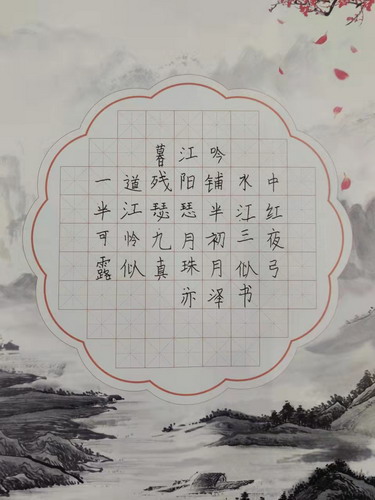 暮江吟
一道残阳铺水中
半江瑟瑟半江红
可怜九月初三夜
露似真珠月似弓
亦泽书